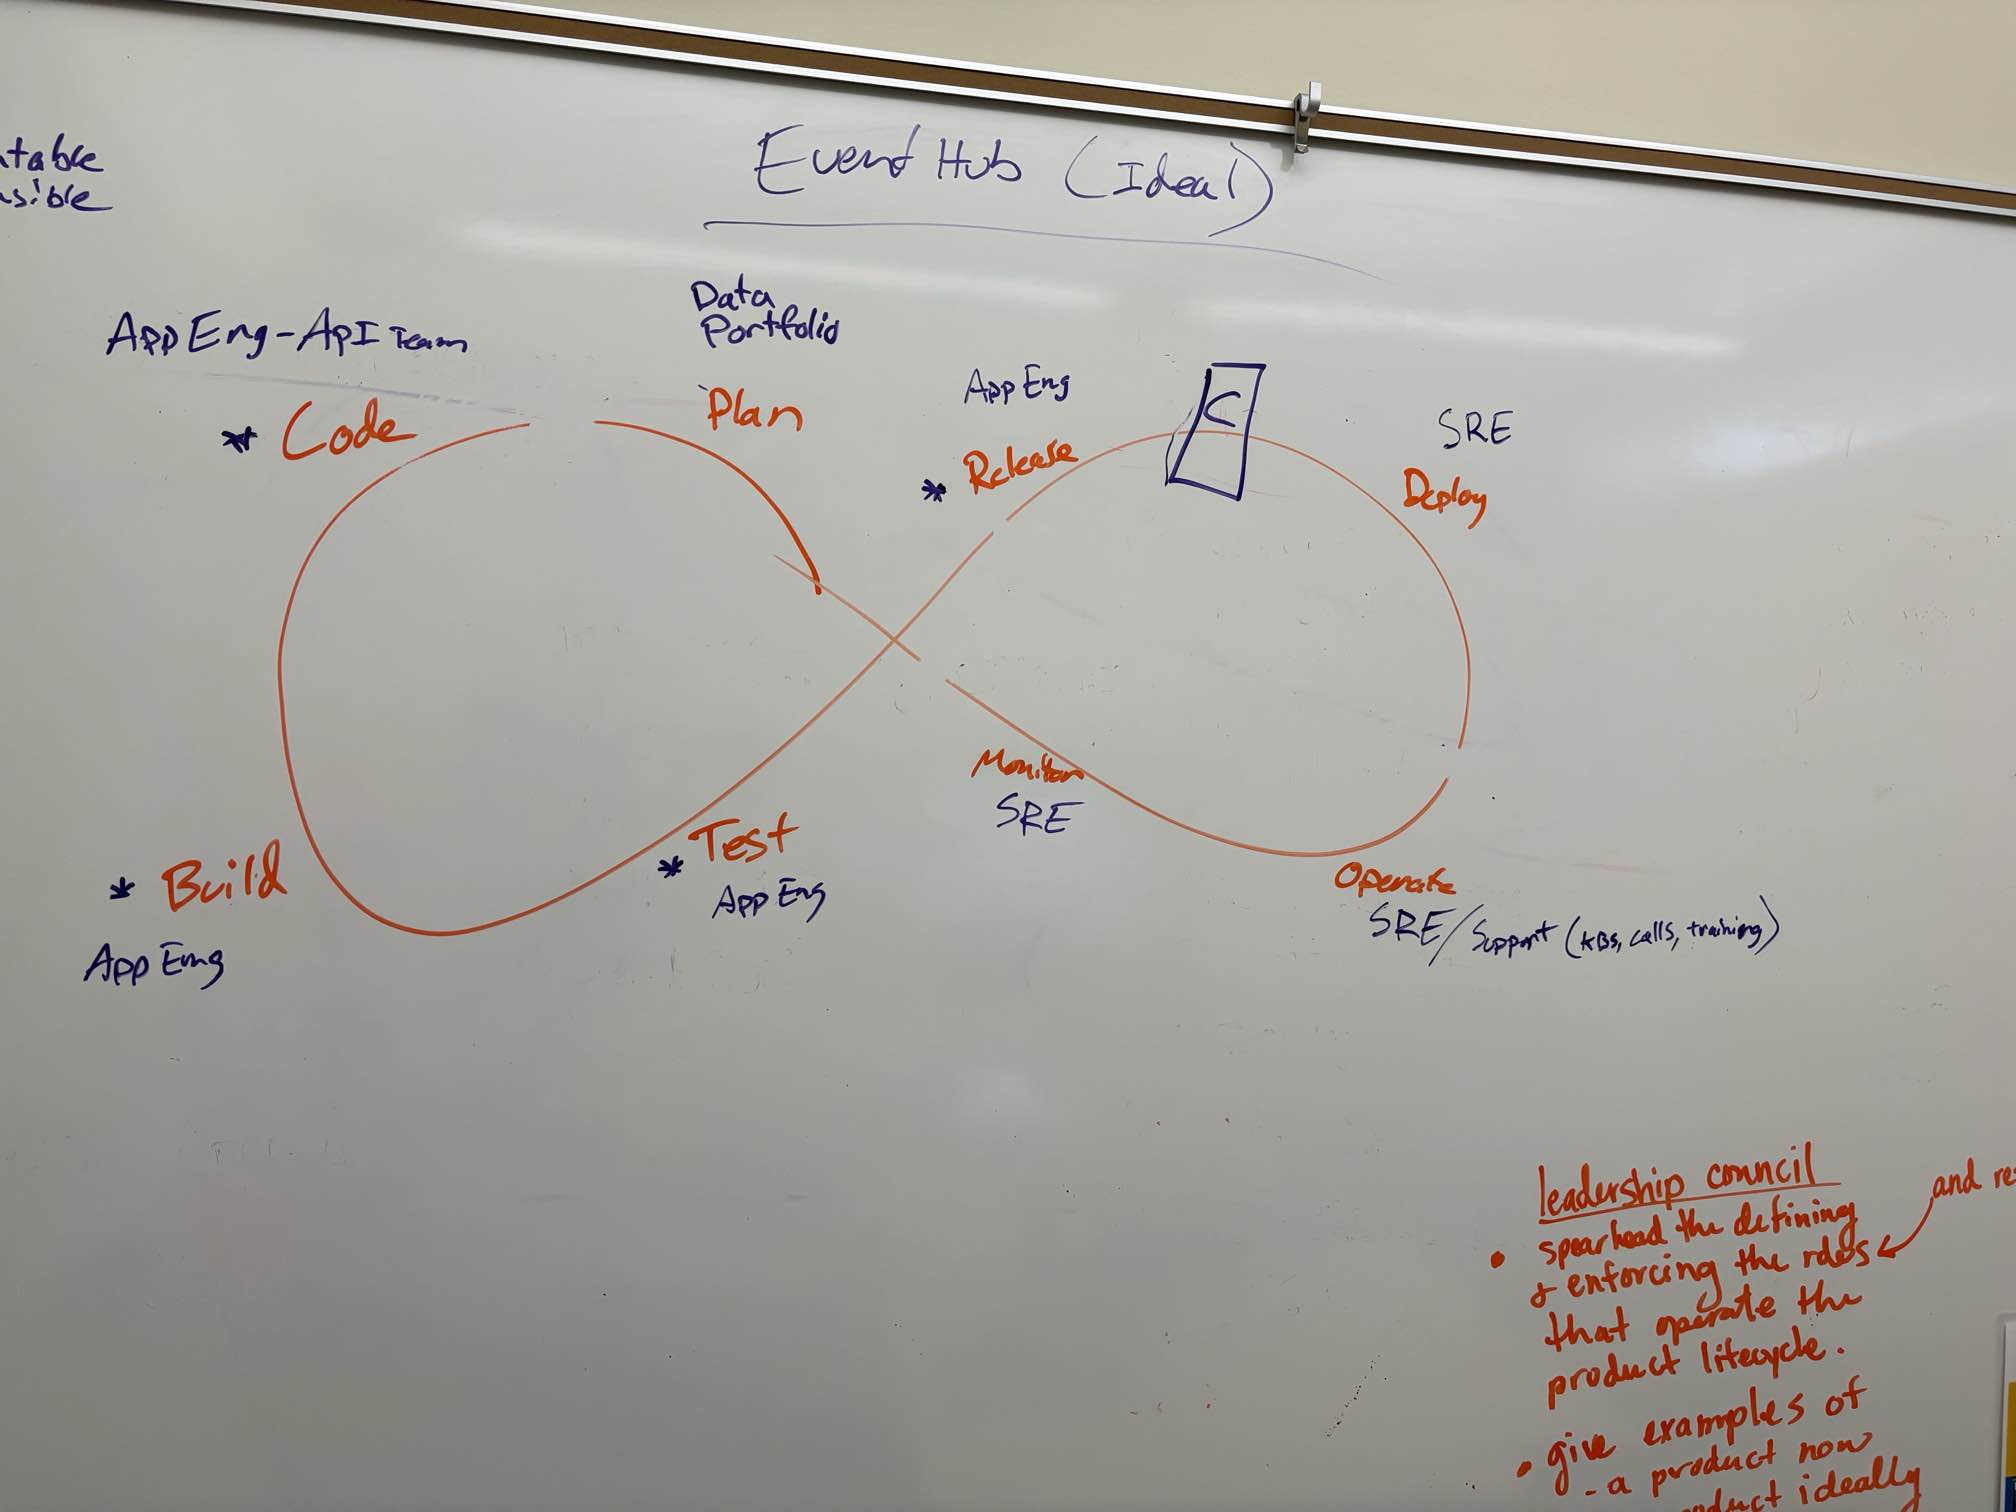 Event Hub (Ideal)
App Eng - ApI Team
* Code
Data
Portfolio
Plan
App Eng
* Release
C
SRE
Deploy
Monitor
SRE
* Test
App Eng
* Build
App Eng
Operate
SRE/Support (KBs, calls, training)
leadership council
• spearhead the defining
& enforcing the roles
that operate the
product lifecycle.
and
• give examples of
- a product now
ideally